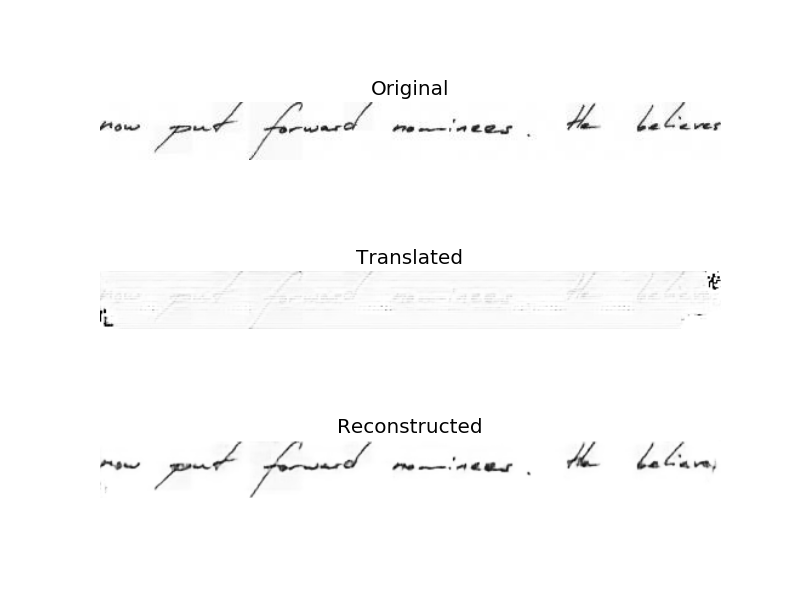 Original
now put forward nominees. He believes
Translated
now put forward nominees He believe
Reconstructed
now put forward nominees. He believe